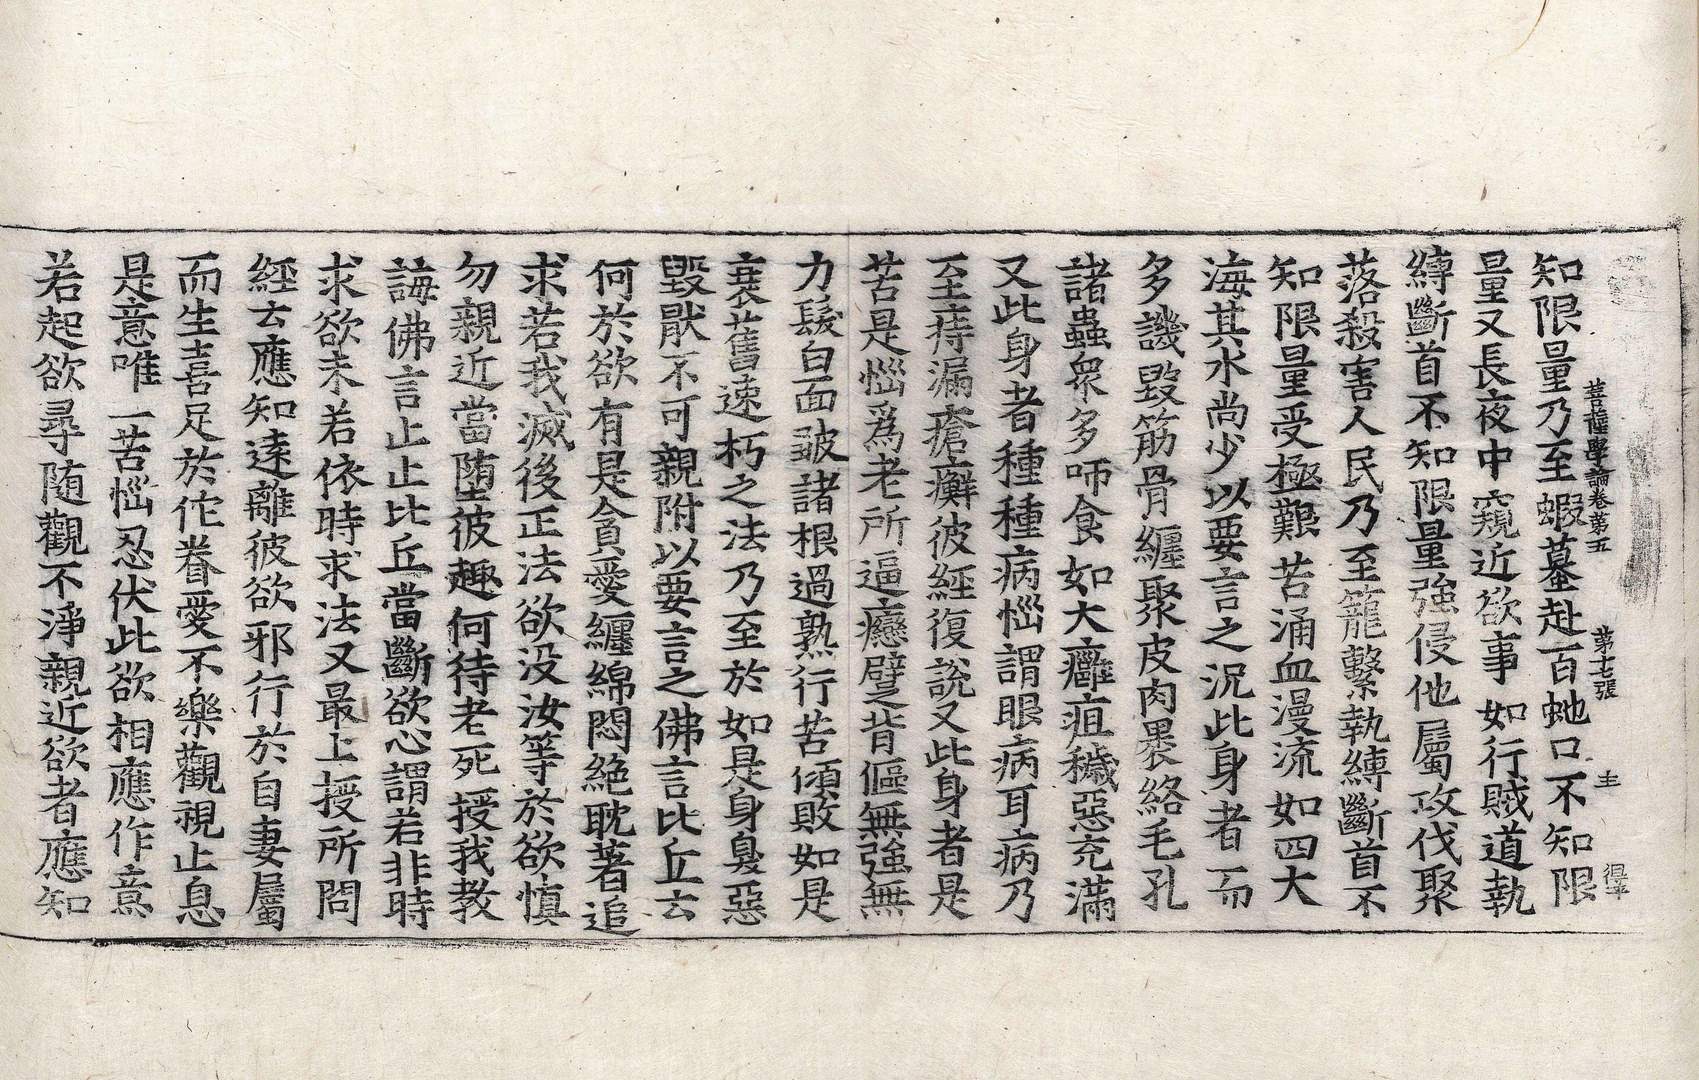 菩薩學論卷第五　第十七張　圭　得平
知限量乃至蝦蟇赴百虵口不知限
量又長夜中窺近欲事如行賊道執
縛斷首不知限量強侵他屬攻伐聚
落殺害人民乃至籠繫執縛斷首不
知限量受極艱苦涌血漫流如四大
海其水尚少以要言之況此身者而
多譏毀筋骨纏聚皮肉褁絡毛孔
諸蟲衆多咂食如大癰疽穢惡充滿
又此身者種種病惱謂眼病耳病乃
至痔漏瘡癬彼經復說又此身者是
苦是惱爲老所逼癭躄背傴無強無
力髮白面皺諸根過熟行苦傾敗如是
衰舊速朽之法乃至於如是身臭惡
毀猒不可親附以要言之佛言比丘云
何於欲有是貪愛纏綿悶絕耽著追
求若我滅後正法欲没汝等於欲慎
勿親近當墮彼趣何待老死授我教
誨佛言止止比丘當斷欲心謂若非時
求欲未若依時求法又最上授所問
經云應知遠離彼欲邪行於自妻屬
而生喜足於佗眷愛不樂觀視止息
是意唯一苦惱忍伏此欲相應作意
若起欲尋随觀不淨親近欲者應知